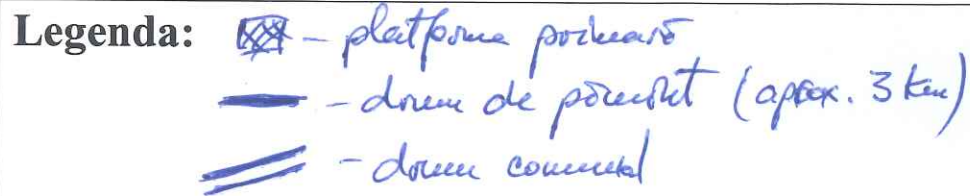 Legenda: - platforma primară
- drum de pământ (aprox. 3 km)
- drum comunal